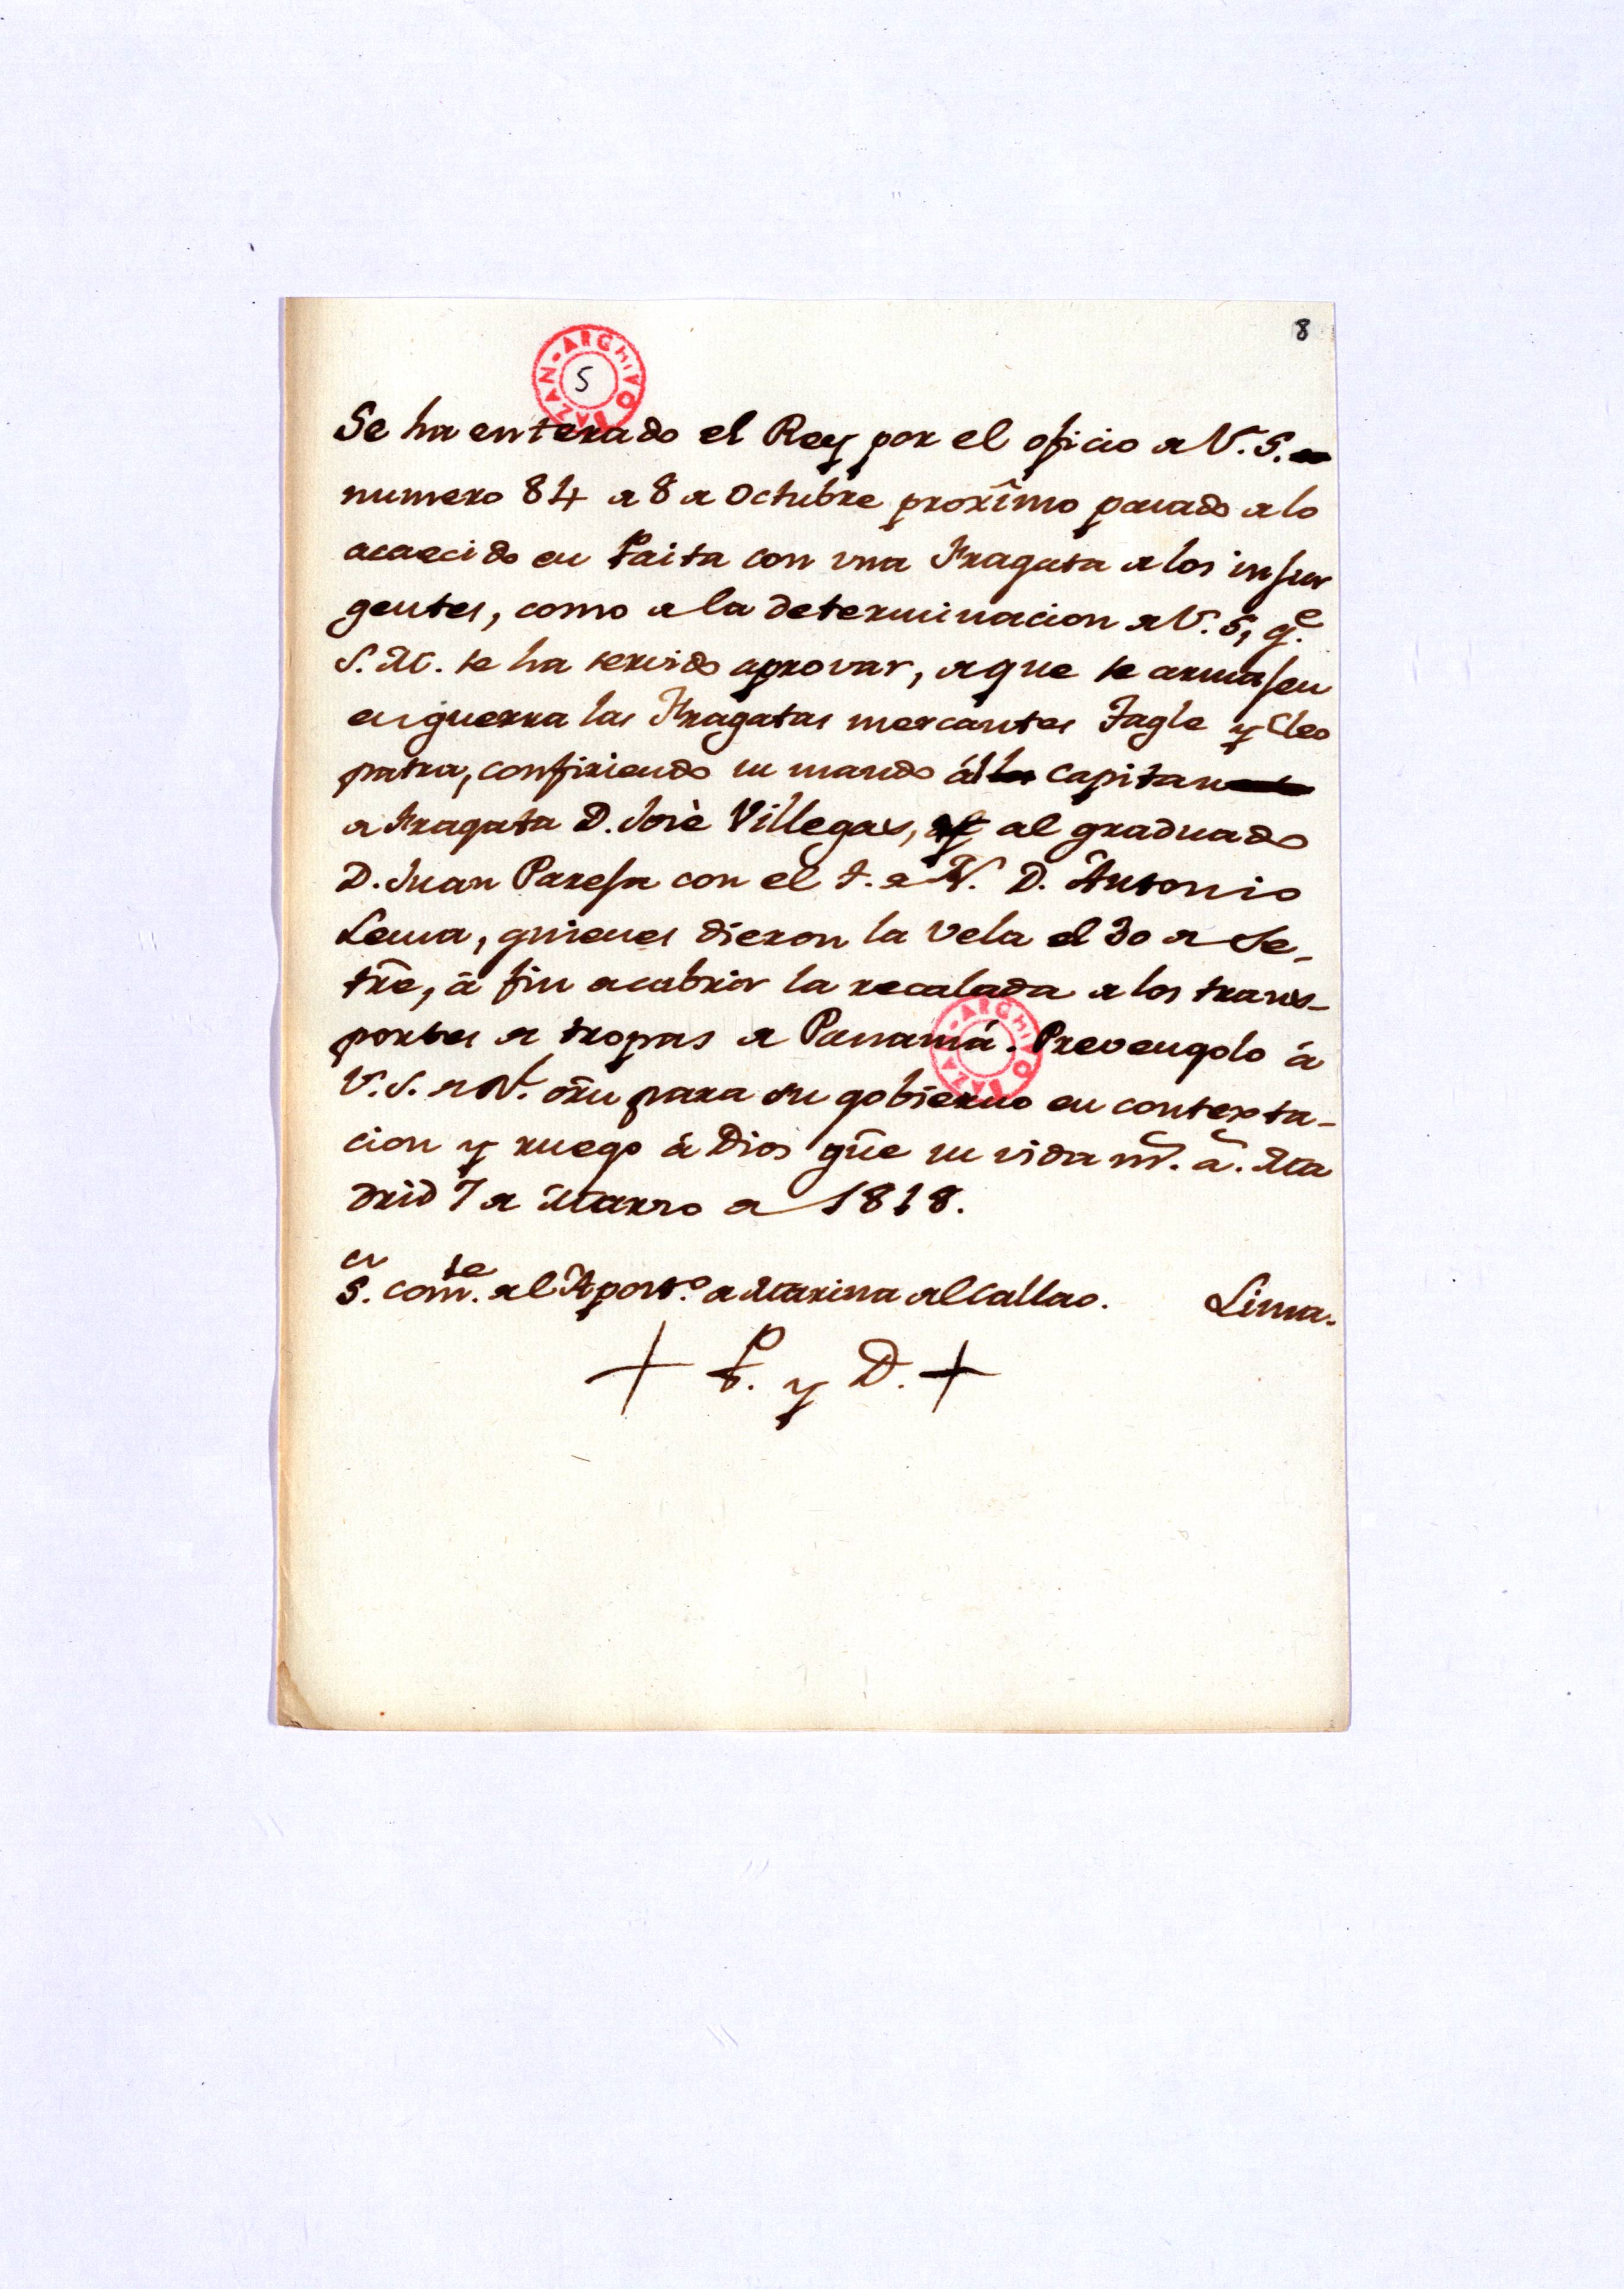 8
ARCHIVO BAZAN
5
Se ha enterado el Rey por el oficio de V.S.
numero 84 de 8 de Octubre proxîmo pasado de lo
acaecido en Paita con una Fragata de los insur
gentes, como de la determinacion de V.S, q.e
S.M. se ha servido aprovar, de que se armasen
en guerra las Fragatas mercantes Tagle y Cleo
patra, confiriendo su mando ál capitan
de Fragata D. Josè Villegas, al graduado
D. Juan Pareja con el T. de N. D. Antonio
Lema, quienes dieron la vela el 30 de Se-
tre, á fin de cubrir la recalada de los trans-
portes de tropas de Panamá. Prevengolo á
V.S. de Rl. orn para su gobierno en contexta-
cion y ruego á Dios gue su vida ms. as. Ma
drid 7 de Marzo de 1818.
Sor. Comte. del Aposto. de Marina del Callao. Lima.
+ P. y D. +
ARCHIVO BAZAN